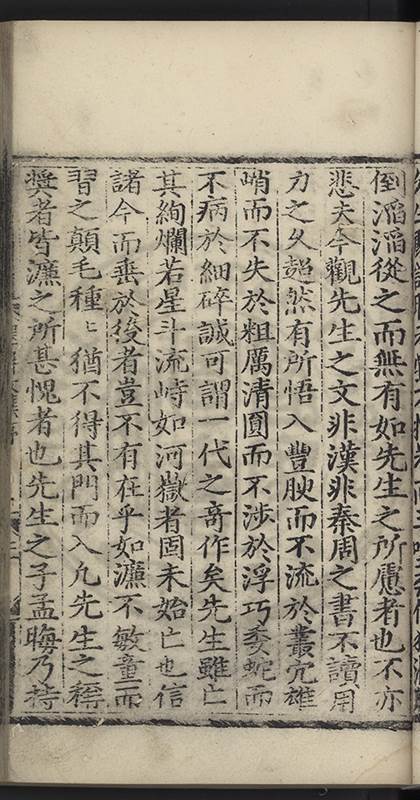 倒滔滔從之而無有如先生之所慮者也不亦
悲夫今觀先生之文非漢非秦周之書不讀用
力之久超然有所悟入豐腴而不流於叢宂雄
峭而不失於粗厲清圓而不涉於浮巧委蛇而
不病於細碎誠可謂一代之奇作矣先生雖亡
其絢爛若星斗流峙如河嶽者固未始亡也信
諸今而垂於後者豈不有在乎如濂不敏童而
習之顛毛種〻猶不得其門而入凢先生之稱
奬者皆濂之所甚愧者也先生之子孟晦乃持